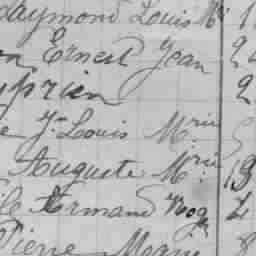 Raymond Louis M 1
Ernest Jean 2
yprien 2
e Jn Louis Mrie
Auguste M.rie 13
le Armand
Pierre